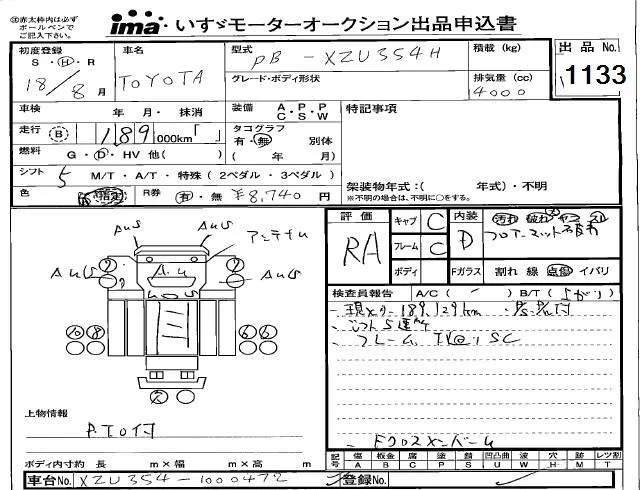 ※赤太枠内は必ずボールペンでご記入下さい。
ima・いすゞモーターオークション出品申込書
初度登録 車名 型式 PB - XZU354H 積載 (kg) 出品 No.
S・H・R TOYOTA グレード・ボディ形状 排気量 (cc) 1133
18/8月 4000
車検 年 月・抹消 装備 A・P・P C・S・W 特記事項
走行 B 189 000km「 」 タコグラフ 有・無 別体
燃料 G・D・HV 他( ) ( 年 月)
シフト 5 M/T・A/T・特殊(2ペダル・3ペダル)
架装物年式:( 年式)・不明
※不明の場合は、不明に○をする。
色 指定 R券 有・無 ¥8,740 円
評価 RA キャブ C 内装 D 汚れ 破れ
フレーム C フロアーマット
ボディ Fガラス 割れ 線 点傷 イバリ
検査員報告 A/C ( - ) B/T ( )
189,129km
シフト5速
フレーム SC
AuS AuS アンテナu
AuS AuS
上物情報
P.T.O付
ボディ内寸約 長 m×幅 m×高 m
記号 傷 板金 腐 塗 錆 凹凸曲 波 穴 時 レツ割
A B C P S U W H M T
車台No. XZU354-1000472 登録No.